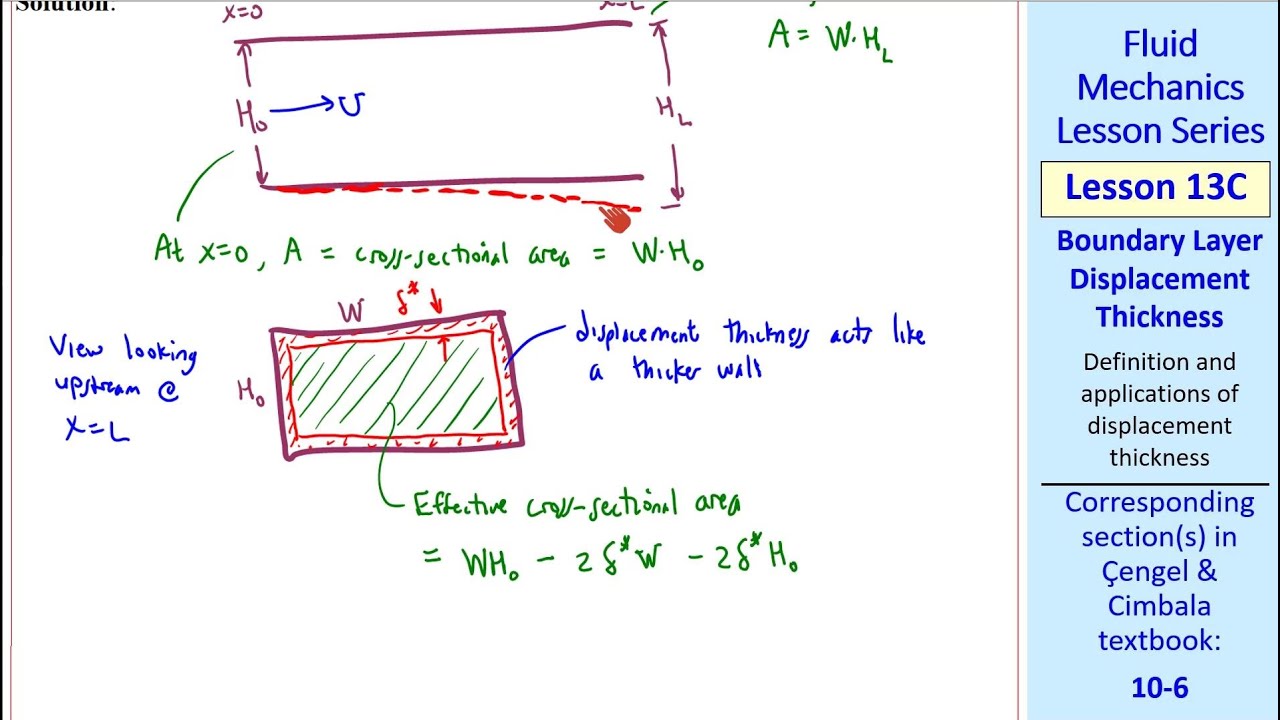 Solution:
x=0
x=L
A = W·H_L
H₀ → U
H_L
At x=0, A = cross-sectional area = W·H₀
W δ*
View looking
upstream @
x=L
H₀
displacement thickness acts like
a thicker wall
Effective cross-sectional area
= WH₀ - 2δ*W - 2δ*H₀
Fluid
Mechanics
Lesson Series
Lesson 13C
Boundary Layer
Displacement
Thickness
Definition and
applications of
displacement
thickness
Corresponding
section(s) in
Çengel &
Cimbala
textbook:
10-6